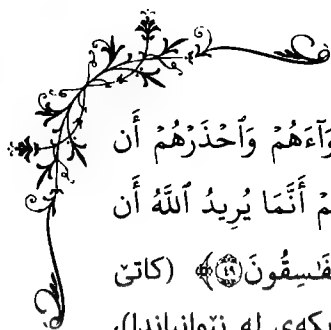 وَآءَهُمۡ وَٱحۡذَرۡهُمۡ أَن
مۡ أَنَّمَا يُرِيدُ ٱللَّهُ أَن
فَـٰسِقُونَ ٤٩﴾ (كاتێ